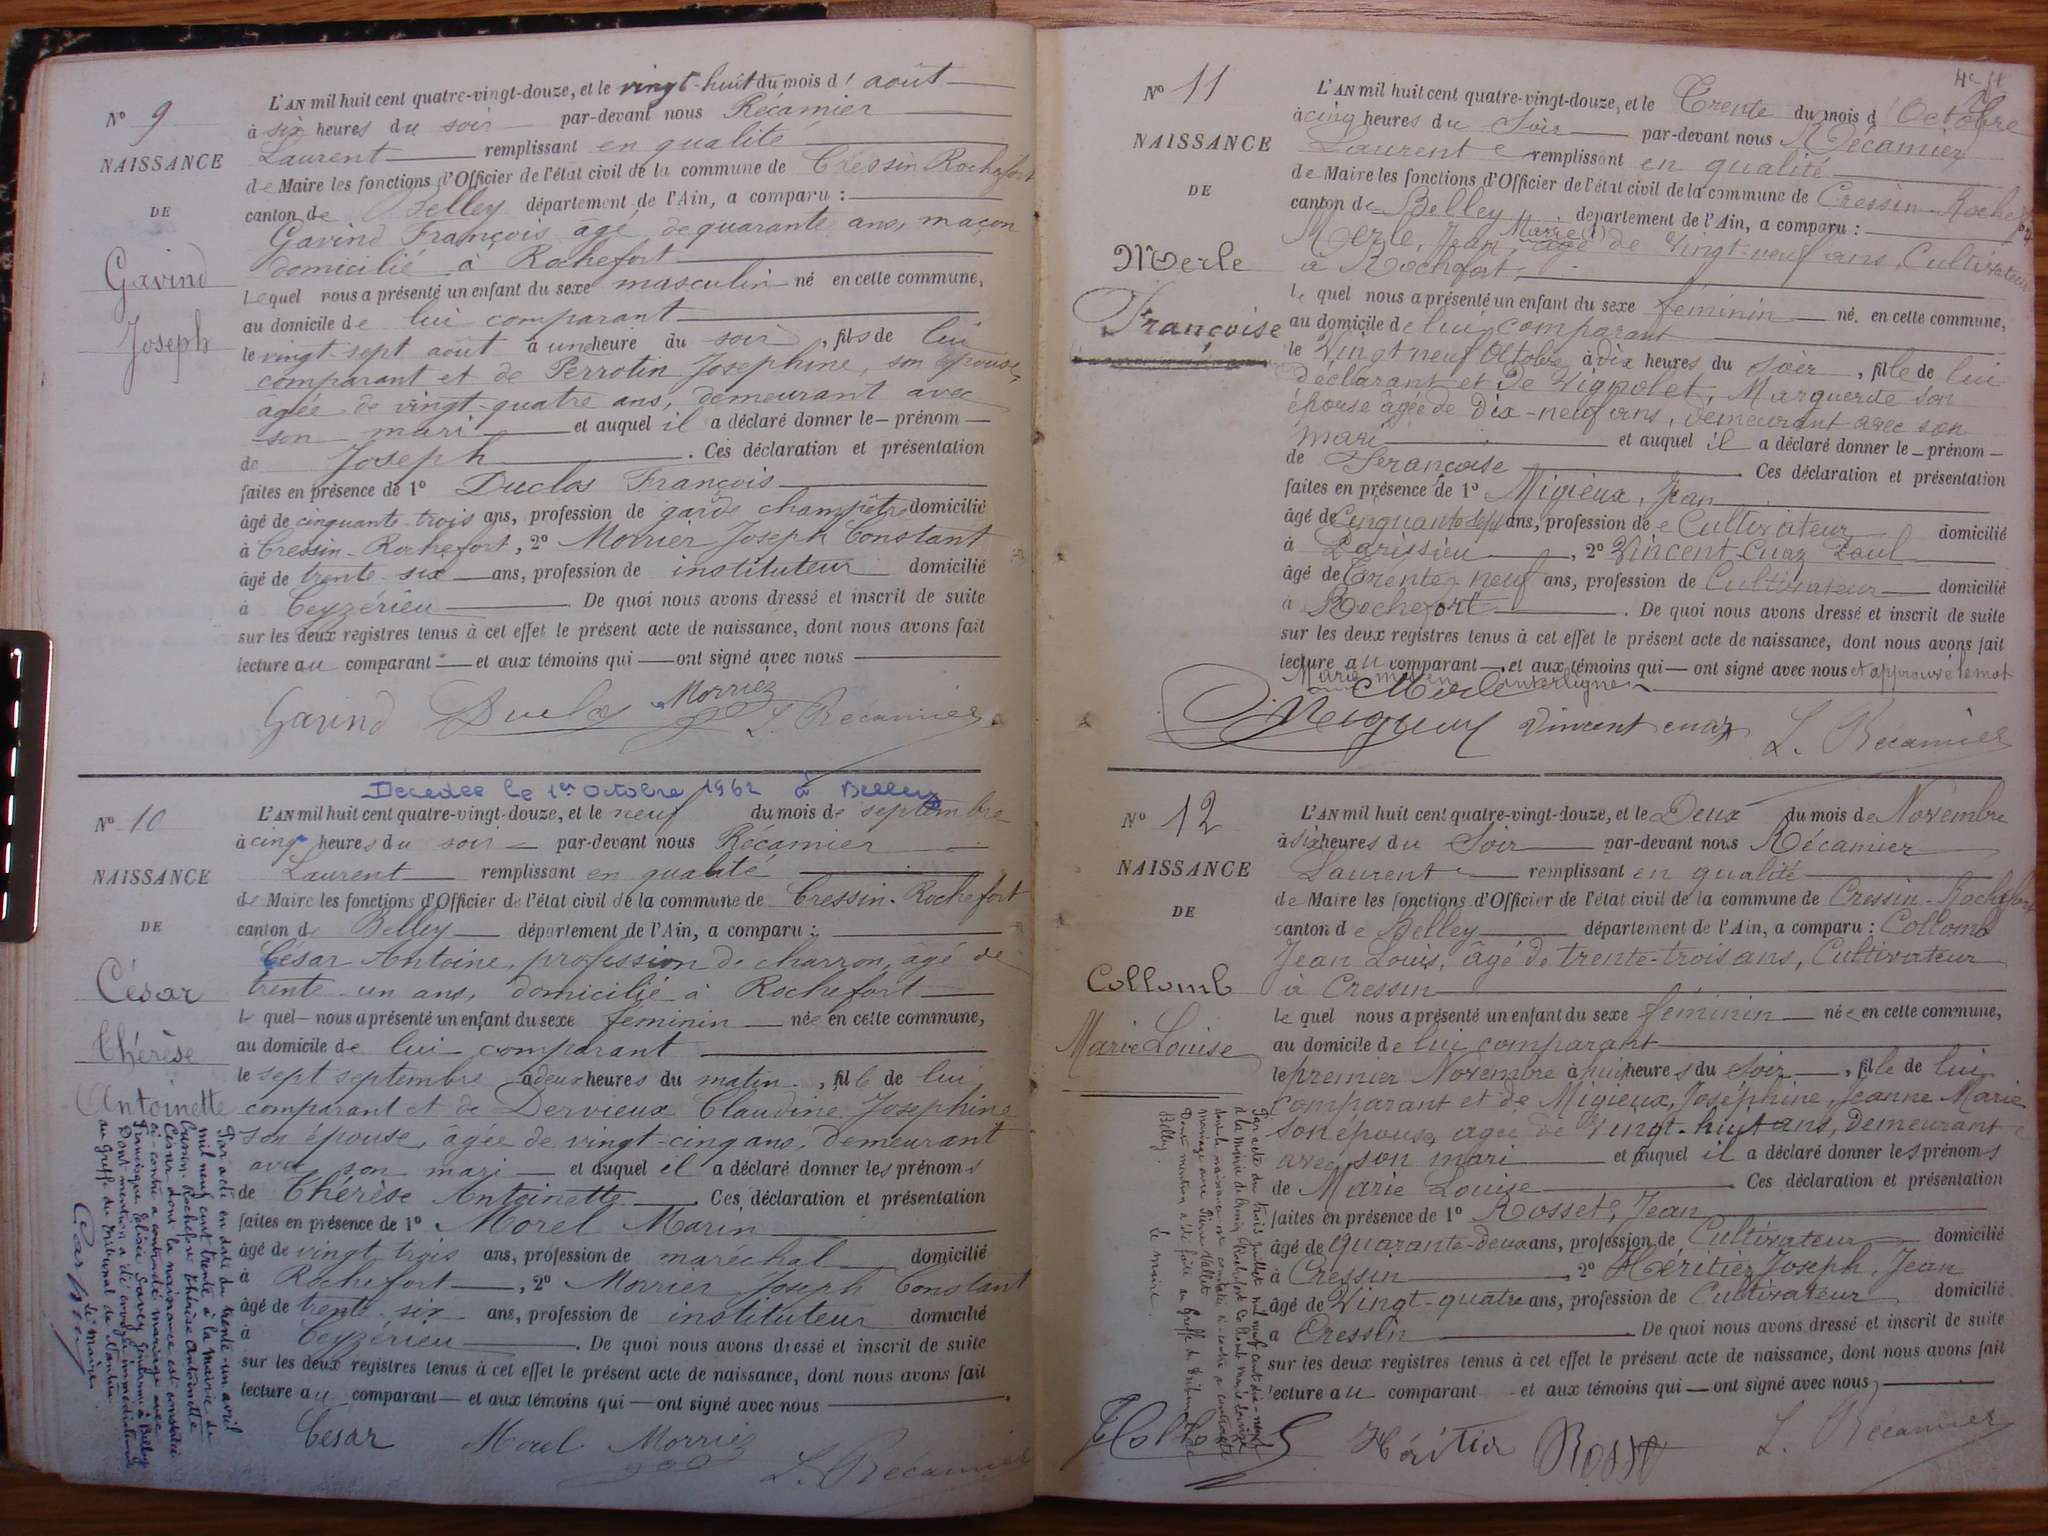 N° 9
NAISSANCE
DE
Gavind
Joseph
L'AN mil huit cent quatre-vingt-douze, et le vingt-huit du mois d'août
à six heures du soir par-devant nous Récamier
Laurent remplissant en qualité
de Maire les fonctions d'Officier de l'état civil de la commune de Cressin Rochefort
canton de Belley département de l'Ain, a comparu :
Gavind François âgé de quarante ans, maçon
domicilié à Rochefort
lequel nous a présenté un enfant du sexe masculin né en cette commune,
au domicile de lui comparant
le vingt-sept août à une heure du soir, fils de lui
comparant et de Perrotin Josephine, son épouse,
âgée de vingt-quatre ans, demeurant avec
son mari et auquel il a déclaré donner le prénom
de Joseph. Ces déclaration et présentation
faites en présence de 1° Duclos François
âgé de cinquante-trois ans, profession de garde champêtre domicilié
à Cressin-Rochefort, 2° Morrier Joseph Constant
âgé de trente-six ans, profession de instituteur domicilié
à Ceyzérieu. De quoi nous avons dressé et inscrit de suite
sur les deux registres tenus à cet effet le présent acte de naissance, dont nous avons fait
lecture au comparant et aux témoins qui ont signé avec nous
Gavind Duclos Morrier L. Récamier
Décédée le 1er Octobre 1962 à Belley
N° 10
NAISSANCE
DE
César
Thérèse
Antoinette
L'AN mil huit cent quatre-vingt-douze, et le neuf du mois de septembre
à cinq heures du soir par-devant nous Récamier
Laurent remplissant en qualité
de Maire les fonctions d'Officier de l'état civil de la commune de Cressin-Rochefort
canton de Belley département de l'Ain, a comparu :
César Antoine, profession de charron, âgé de
trente-un ans, domicilié à Rochefort
lequel nous a présenté un enfant du sexe féminin née en cette commune,
au domicile de lui comparant
le sept septembre à deux heures du matin, fille de lui
comparant et de Dervieux Claudine Josephine
son épouse, âgée de vingt-cinq ans, demeurant
avec son mari et auquel il a déclaré donner les prénoms
de Thérèse Antoinette Ces déclaration et présentation
faites en présence de 1° Morel Marin
âgé de vingt trois ans, profession de maréchal domicilié
à Rochefort, 2° Morrier Joseph Constant
âgé de trente-six ans, profession de instituteur domicilié
à Ceyzérieu. De quoi nous avons dressé et inscrit de suite
sur les deux registres tenus à cet effet le présent acte de naissance, dont nous avons fait
lecture au comparant et aux témoins qui ont signé avec nous
César Morel Morrier
L. Récamier
Par acte en date du trente-un avril
mil neuf cent trente à la mairie de
Cressin-Rochefort Thérèse Antoinette
César dont la naissance est constatée
ci-contre a contracté mariage avec
à Belley
Dont mention a été envoyée immédiatement
au greffe du tribunal de
le maire
N° 11
NAISSANCE
DE
Merle
Françoise
L'AN mil huit cent quatre-vingt-douze, et le Trente du mois d'Octobre
à cinq heures du Soir par-devant nous Récamier
Laurent remplissant en qualité
de Maire les fonctions d'Officier de l'état civil de la commune de Cressin-Rochefort
canton de Belley département de l'Ain, a comparu :
Merle, Jean, Marie âgé de vingt-neuf ans, Cultivateur
à Rochefort,
le quel nous a présenté un enfant du sexe féminin né. en cette commune,
au domicile de lui comparant
le Vingt neuf Octobre à dix heures du Soir, fille de lui
déclarant et de Vignolet, Marguerite son
épouse âgée de Dix-neuf ans, demeurant avec son
mari et auquel il a déclaré donner le prénom
de Françoise. Ces déclaration et présentation
faites en présence de 1° Migieux, Jean
âgé de Cinquante sept ans, profession de Cultivateur domicilié
à Parissieu, 2° Vincent-Cuaz Paul
âgé de Trente-neuf ans, profession de Cultivateur domicilié
à Rochefort. De quoi nous avons dressé et inscrit de suite
sur les deux registres tenus à cet effet le présent acte de naissance, dont nous avons fait
lecture au comparant et aux témoins qui ont signé avec nous et approuvé le mot
Marie mis en interligne
Merle
Migieux Vincent cuaz L. Récamier
N° 12
NAISSANCE
DE
Collomb
Marie Louise
L'AN mil huit cent quatre-vingt-douze, et le Deux du mois de Novembre
à six heures du Soir par-devant nous Récamier
Laurent remplissant en qualité
de Maire les fonctions d'Officier de l'état civil de la commune de Cressin-Rochefort
canton de Belley département de l'Ain, a comparu : Collomb
Jean Louis, âgé de trente-trois ans, Cultivateur
à Cressin
le quel nous a présenté un enfant du sexe féminin née en cette commune,
au domicile de lui comparant
le premier Novembre à huit heures du Soir, fille de lui
comparant et de Migieux, Joséphine, Jeanne Marie
son épouse, agée de Vingt-huit ans, demeurant
avec son mari et auquel il a déclaré donner les prénoms
de Marie Louise. Ces déclaration et présentation
faites en présence de 1° Rosset, Jean
âgé de quarante-deux ans, profession de Cultivateur domicilié
à Cressin, 2° Héritier Joseph, Jean
âgé de Vingt-quatre ans, profession de Cultivateur domicilié
à Cressin. De quoi nous avons dressé et inscrit de suite
sur les deux registres tenus à cet effet le présent acte de naissance, dont nous avons fait
lecture au comparant et aux témoins qui ont signé avec nous
Héritier Rosset L. Récamier
Par acte du trois juillet mil neuf cent dix-neuf
à la mairie de Cressin Rochefort Collomb Marie Louise
dont la naissance est constatée ci-contre a contracté
mariage avec Pierre Vallet
Dont mention a été faite au Greffe du Tribunal de
Belley. Le maire.